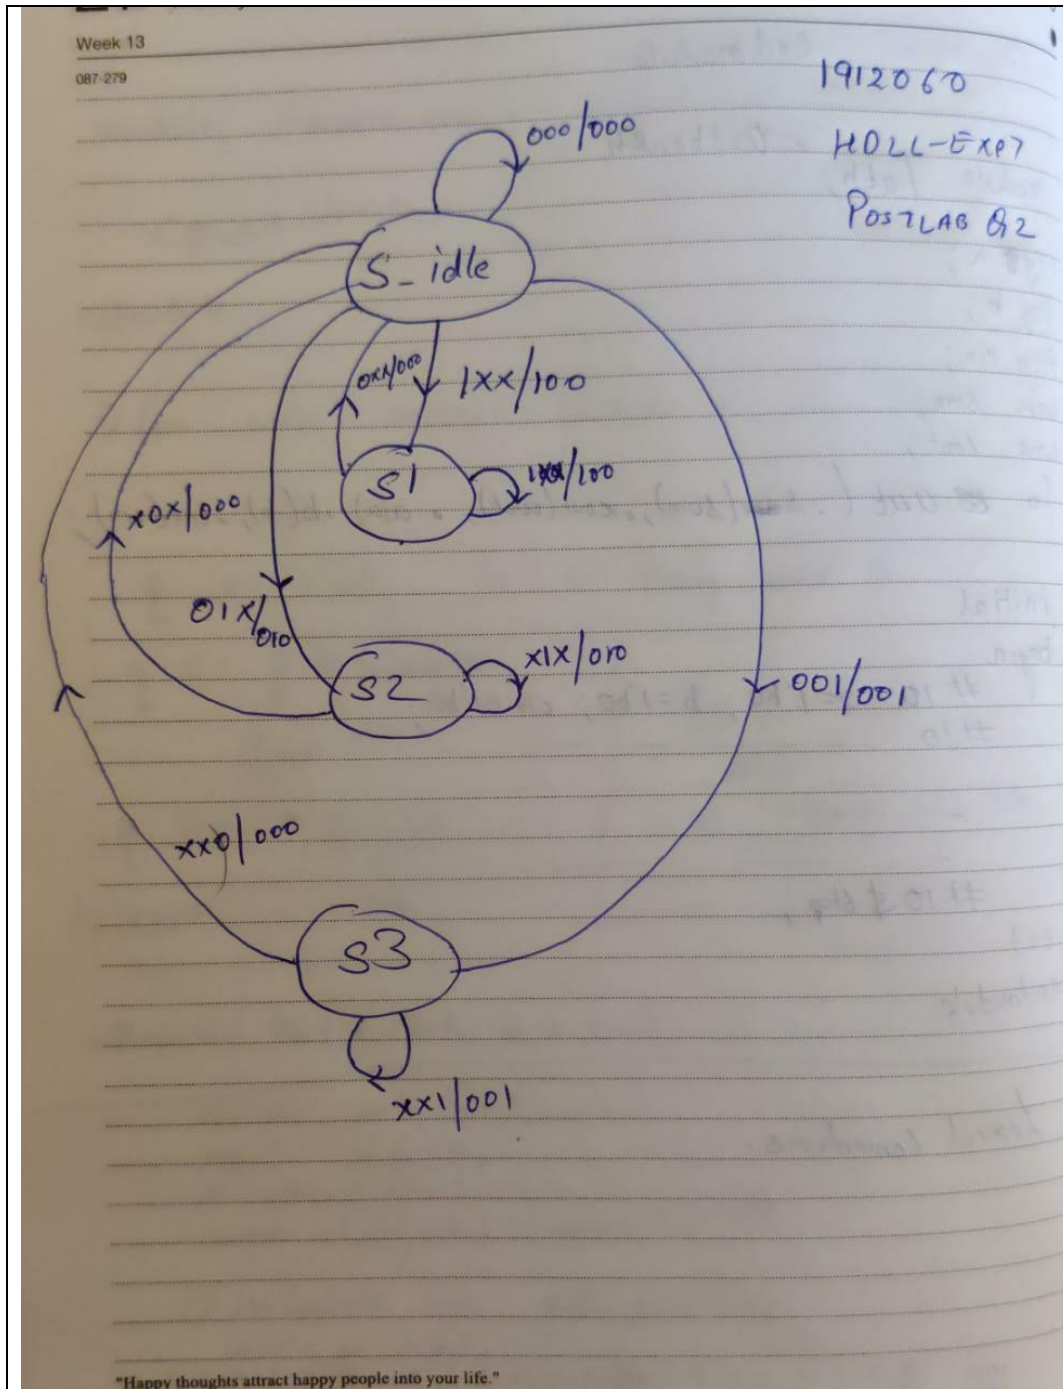 Week 13
087-279
1912060
HDLL-EXP7
POSTLAB Q2
000/000
S_idle
0xx/000
1XX/100
S1
1xx/100
x0x/000
01X/010
S2
x1x/010
001/001
xx0/000
S3
xx1/001
"Happy thoughts attract happy people into your life."